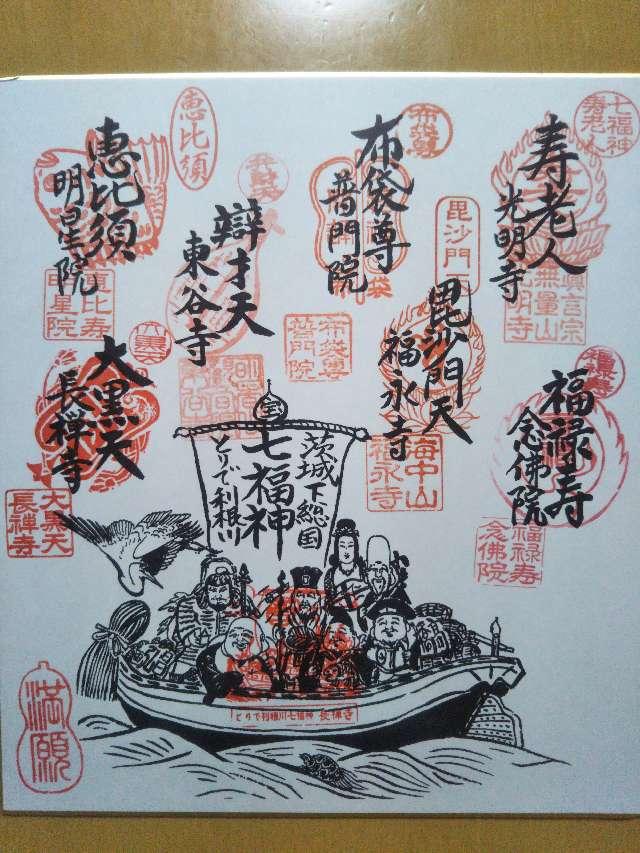 七福神
寿老人
寿老人
光明寺
真言宗
無量山
光明寺
布袋尊
布袋尊
普門院
布袋尊
普門院
恵比須
恵比須
明星院
恵比寿
明星院
辯才天
東谷寺
毘沙門天
毘沙門天
福永寺
海中山
福永寺
大黒天
大黒天
長禅寺
大黒天
長禅寺
福禄寿
福禄寿
念佛院
福禄寿
念佛院
宝
茨城下総国
七福神
とりで利根川
とりで利根川七福神 長禅寺
満願